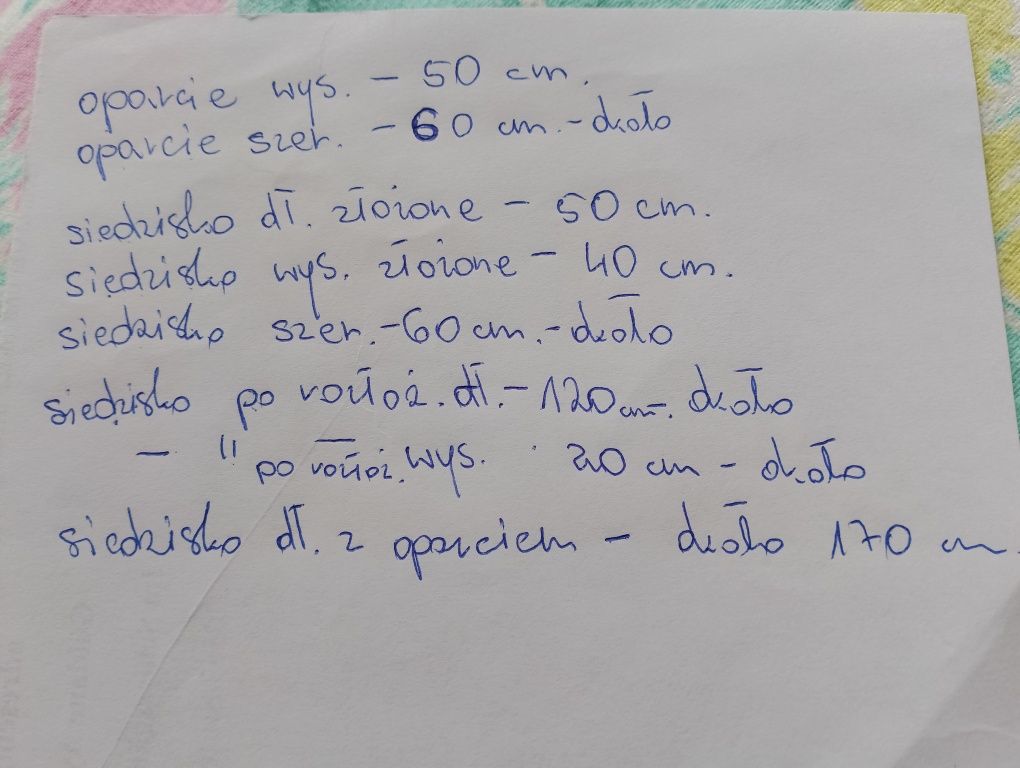 oparcie wys. - 50 cm.
oparcie szer. - 60 cm. - około
siedzisko dł. złożone - 50 cm.
siedzisko wys. złożone - 40 cm.
siedzisko szer. - 60 cm. - około
siedzisko po rozłoż. dł. - 120 cm. około
- " po rozłoż. wys. 20 cm - około
siedzisko dł. z oparciem - około 170 cm